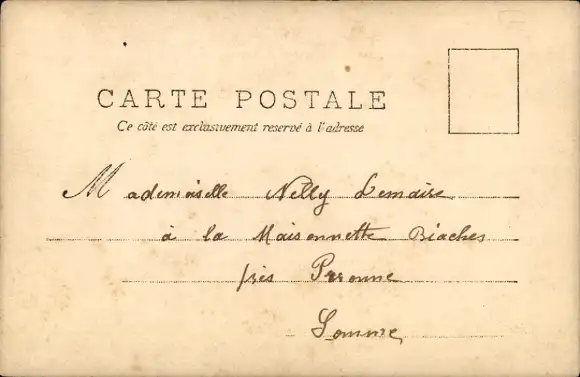 CARTE POSTALE
Ce côté est exclusivement reservé à l'adresse
Mademoiselle Nelly Lemaire
à la Maisonnette Biaches
près Péronne
Somme